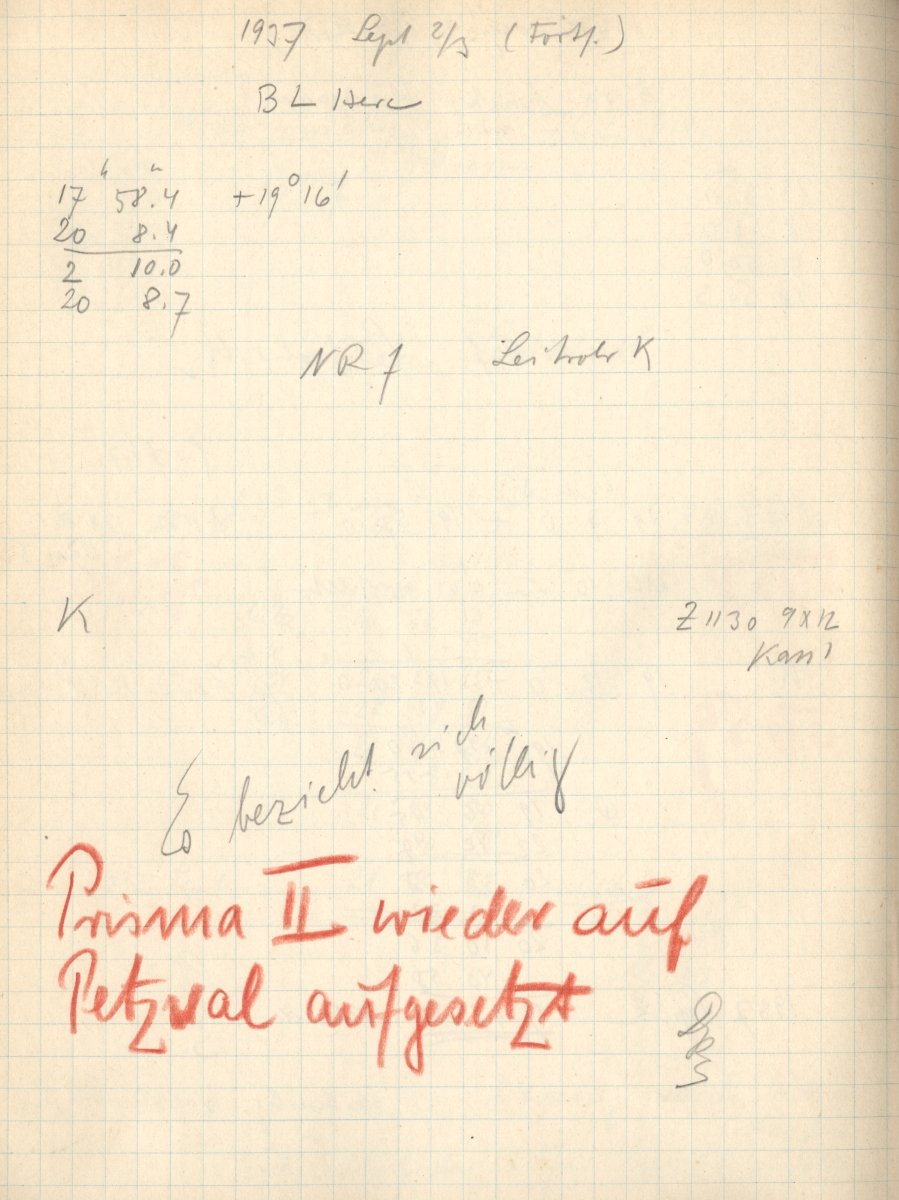 1937 Sept 2/3 (Forts.)
BL Herc
17h 58.4m +19° 16'
20 8.4
2 10.0
20 8.7
NR 7 Leitrohr K
K Z 1130 9x12
Es bezieht sich völlig
Prisma II wieder auf
Petzval aufgesetzt